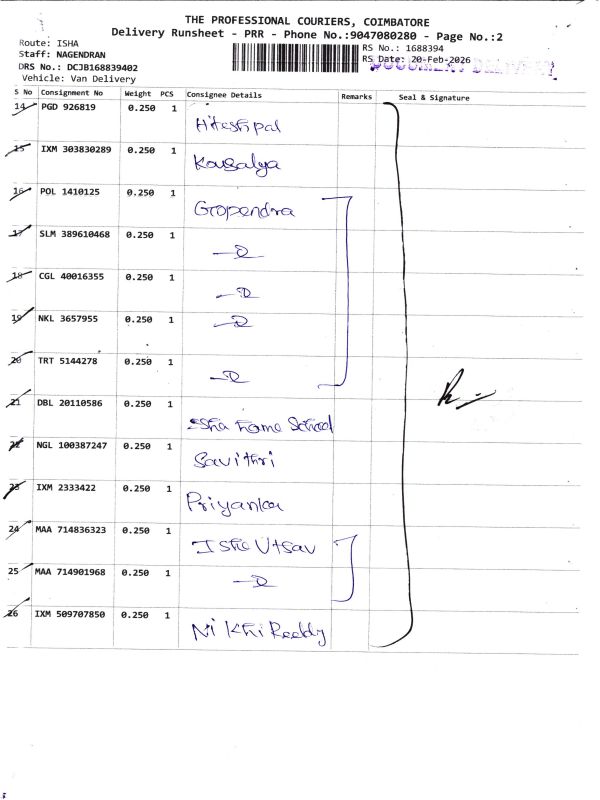 THE PROFESSIONAL COURIERS, COIMBATORE
Delivery Runsheet - PRR - Phone No.:9047080280 - Page No.:2
Route: ISHA
Staff: NAGENDRAN
DRS No.: DCJB168839402
Vehicle: Van Delivery
RS No.: 1688394
RS Date: 20-Feb-2026
DOCUMENT DELIVERY
S No Consignment No Weight PCS Consignee Details Remarks Seal & Signature
14 PGD 926819 0.250 1 Hiteshpal
15 IXM 303830289 0.250 1 Kousalya
16 POL 1410125 0.250 1 Gropendra
17 SLM 389610468 0.250 1
18 CGL 40016355 0.250 1
19 NKL 3657955 0.250 1
20 TRT 5144278 0.250 1
21 DBL 20110586 0.250 1 Isha Home School
22 NGL 100387247 0.250 1 Savithri
23 IXM 2333422 0.250 1 Priyanka
24 MAA 714836323 0.250 1 Isha Utsav
25 MAA 714901968 0.250 1
26 IXM 509707850 0.250 1 Ni Khi Reddy